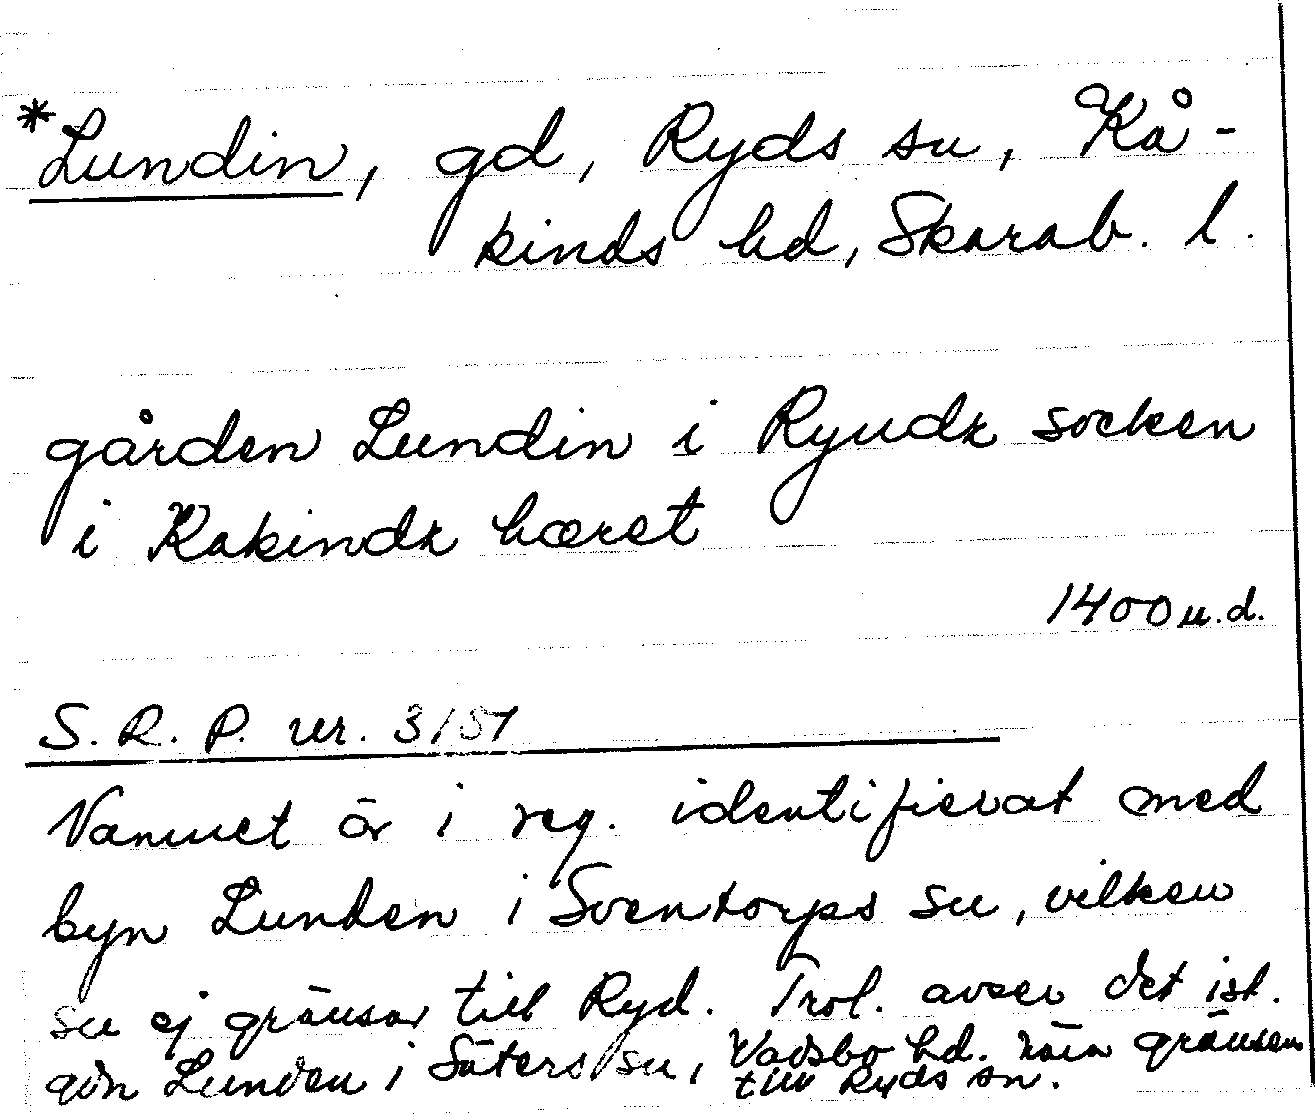 *Lundin, gd, Ryds sn, Kå-
kinds hd, Skarab. l.
gården Lundin i Ryudz socken
i Kakindz hæret
1400 u.d.
S. R. P. nr. 3151
Namnet är i reg. identifierat med
byn Lunden i Sventorps sn, vilken
sn ej gränsar till Ryd. Trol. avser det ist.
gdn Lunden i Säters sn, Vadsbo hd. nära gränsen
till Ryds sn.